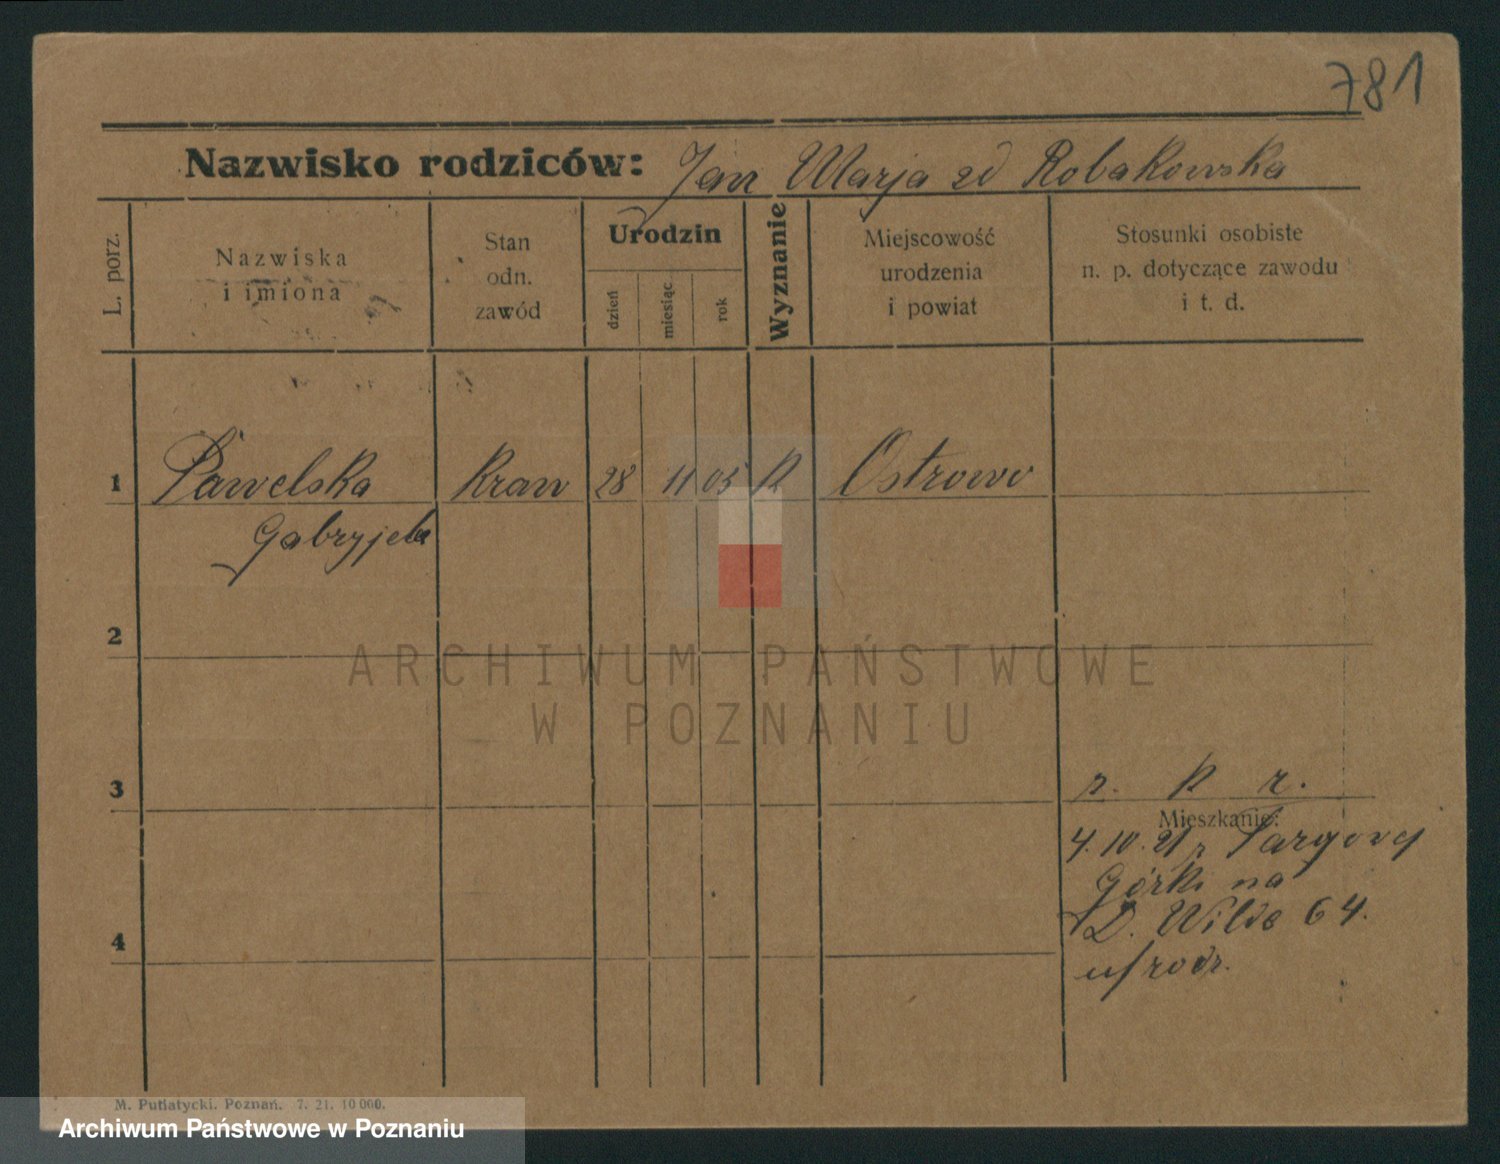 781
Nazwisko rodziców: Jan Marja zd Robakowska
L. porz.
Nazwiska
i imiona
Stan
odn.
zawód
Urodzin
dzień
miesiąc
rok
Wyznanie
Miejscowość
urodzenia
i powiat
Stosunki osobiste
n. p. dotyczące zawodu
i t. d.
1 Pawelska kraw 28 11 05 k Ostrowo
Gabryjela
2
ARCHIWUM PAŃSTWOWE
W POZNANIU
3
r. k r.
Mieszkanie:
4.10.21 z Targowej
Górki na
D. Wilda 64.
4
u/rodz.
M. Putiatycki. Poznań. 7. 21. 10 000.
Archiwum Państwowe w Poznaniu